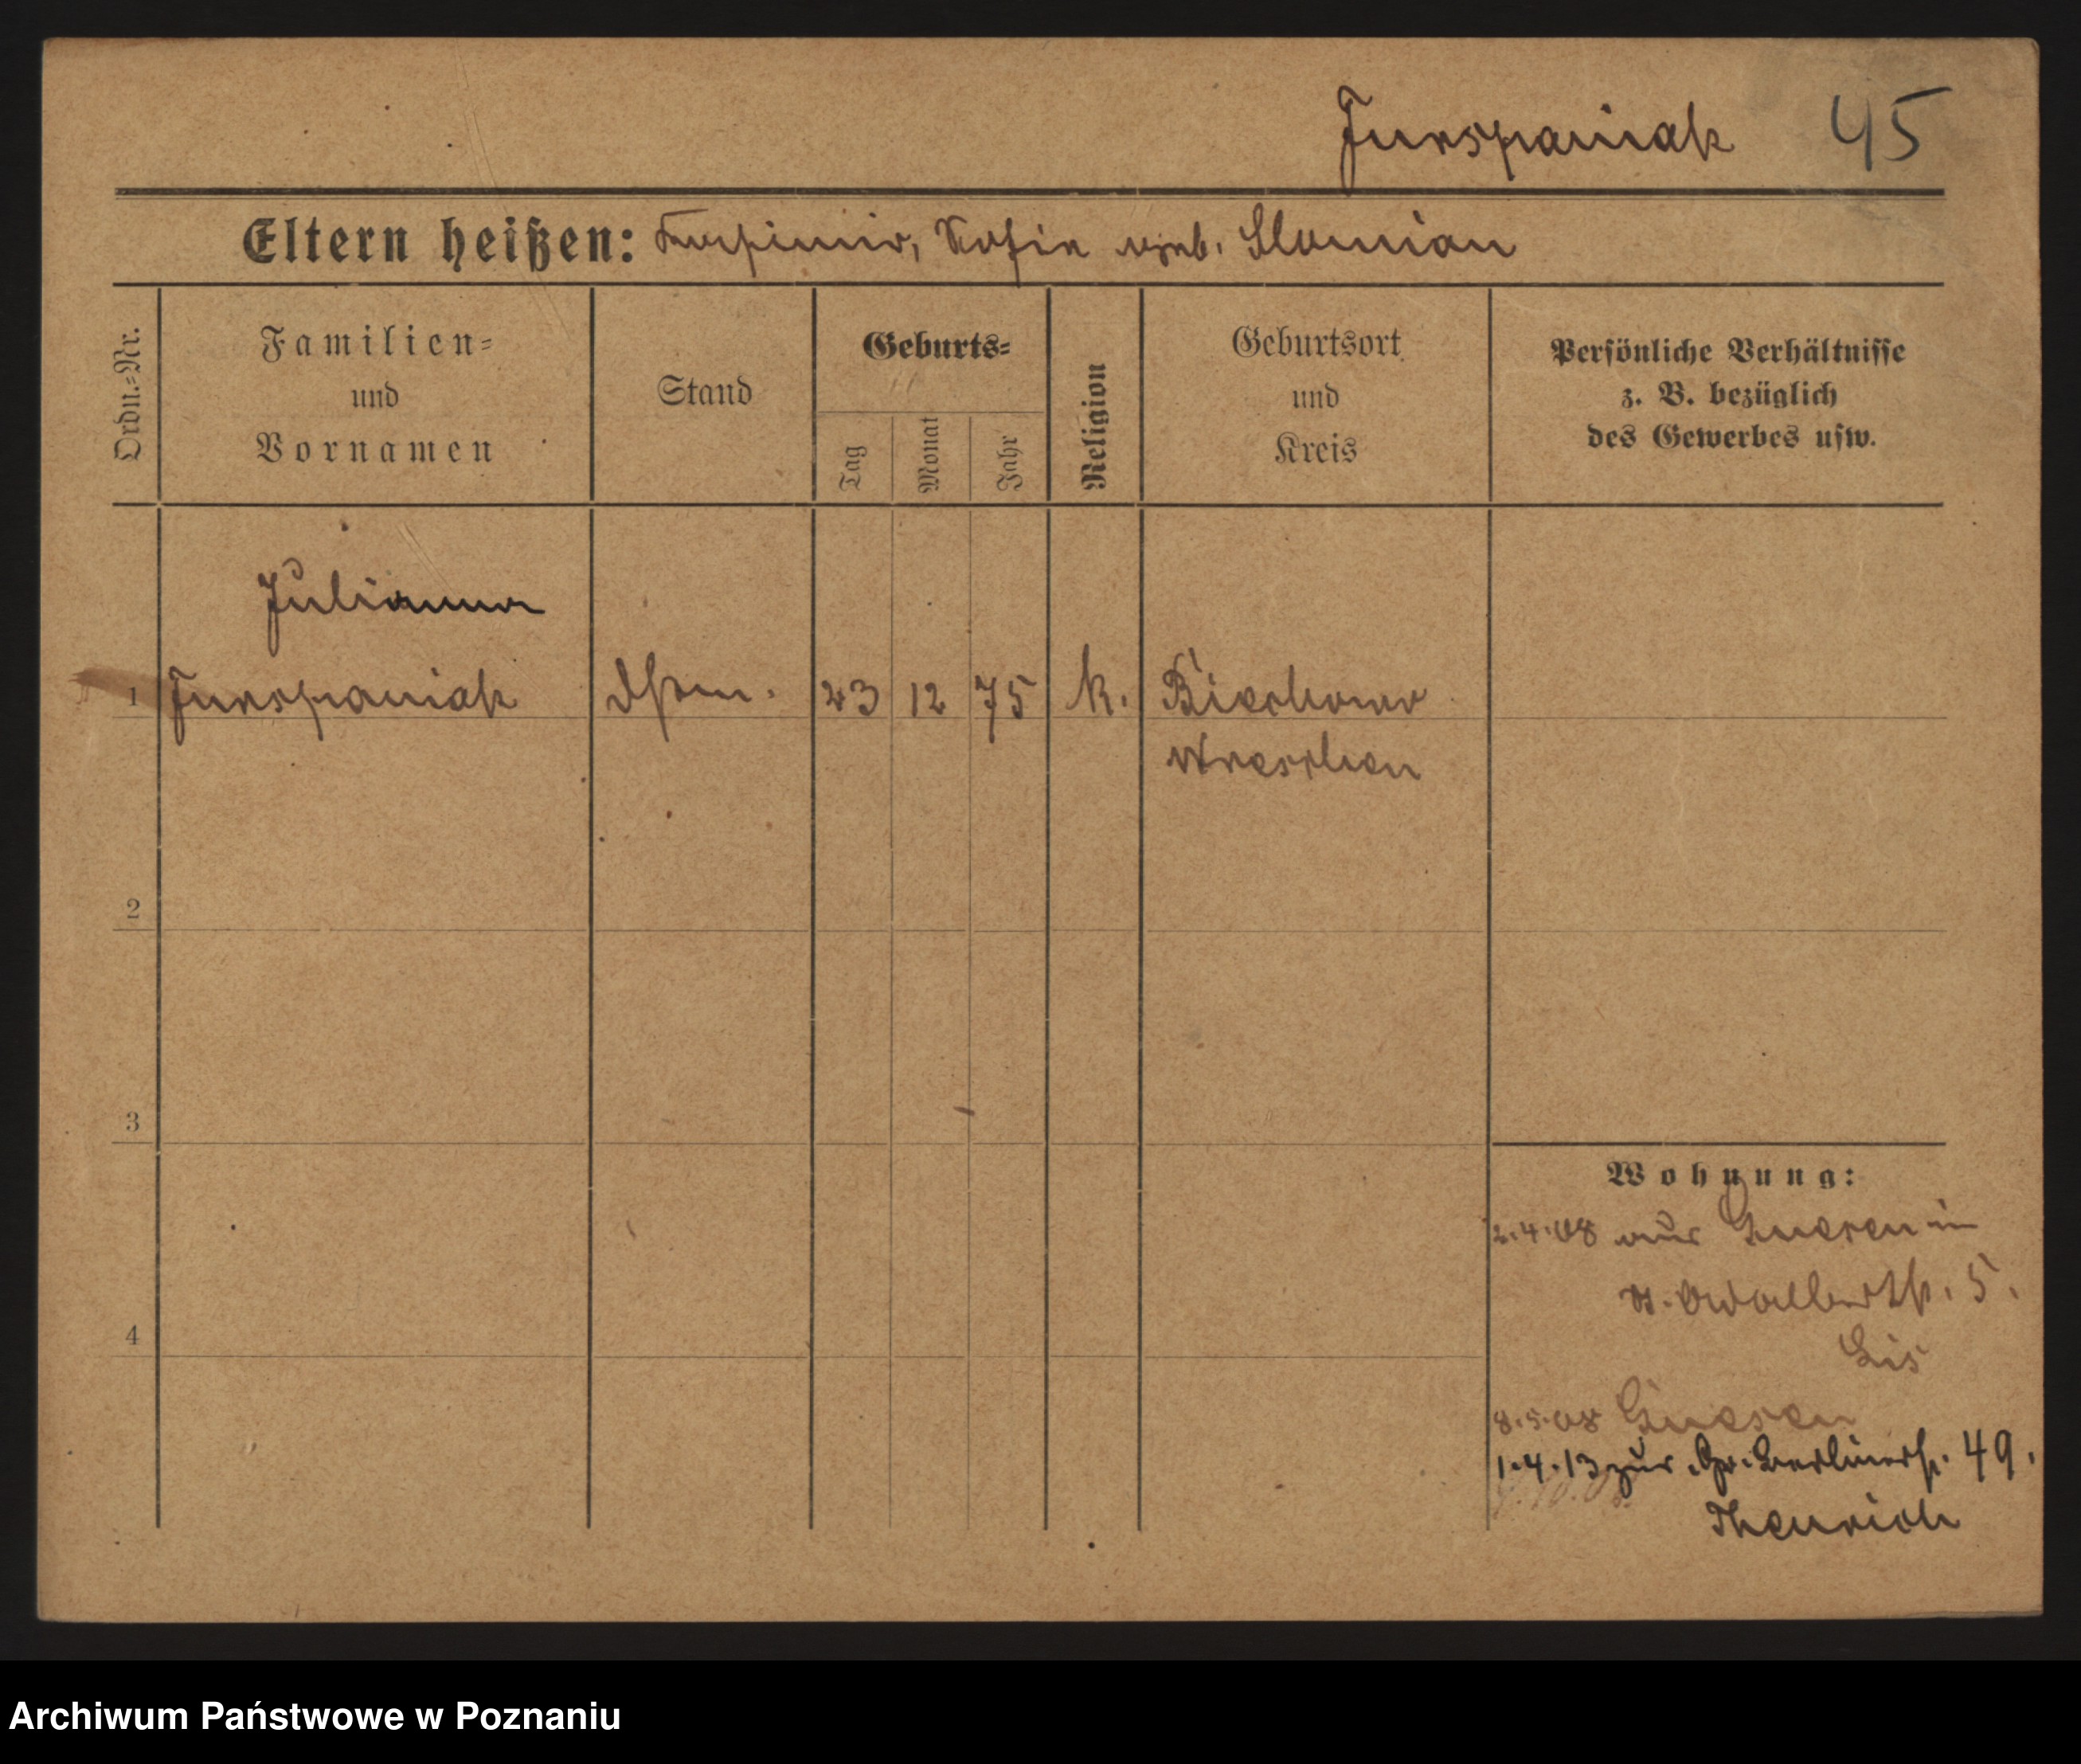 Jurszaniak 45
Eltern heißen: Kasimir, Sofia geb. Sloman
Ordn.-Nr.
Familien-
und
Vornamen
Stand
Geburts-
Tag
Monat
Jahr
Religion
Geburtsort
und
Kreis
Persönliche Verhältnisse
z. B. bezüglich
des Gewerbes usw.
Julianna
1 23 12 75 k.
Wreschen
2
3
Wohnung:
2.4.08 aus Gnesen in
St. Adalbertstr. 5.
Lis
4
8.5.08 Gnesen
1.4.13 zur. Gr. Berlinerstr. 49.
Archiwum Państwowe w Poznaniu